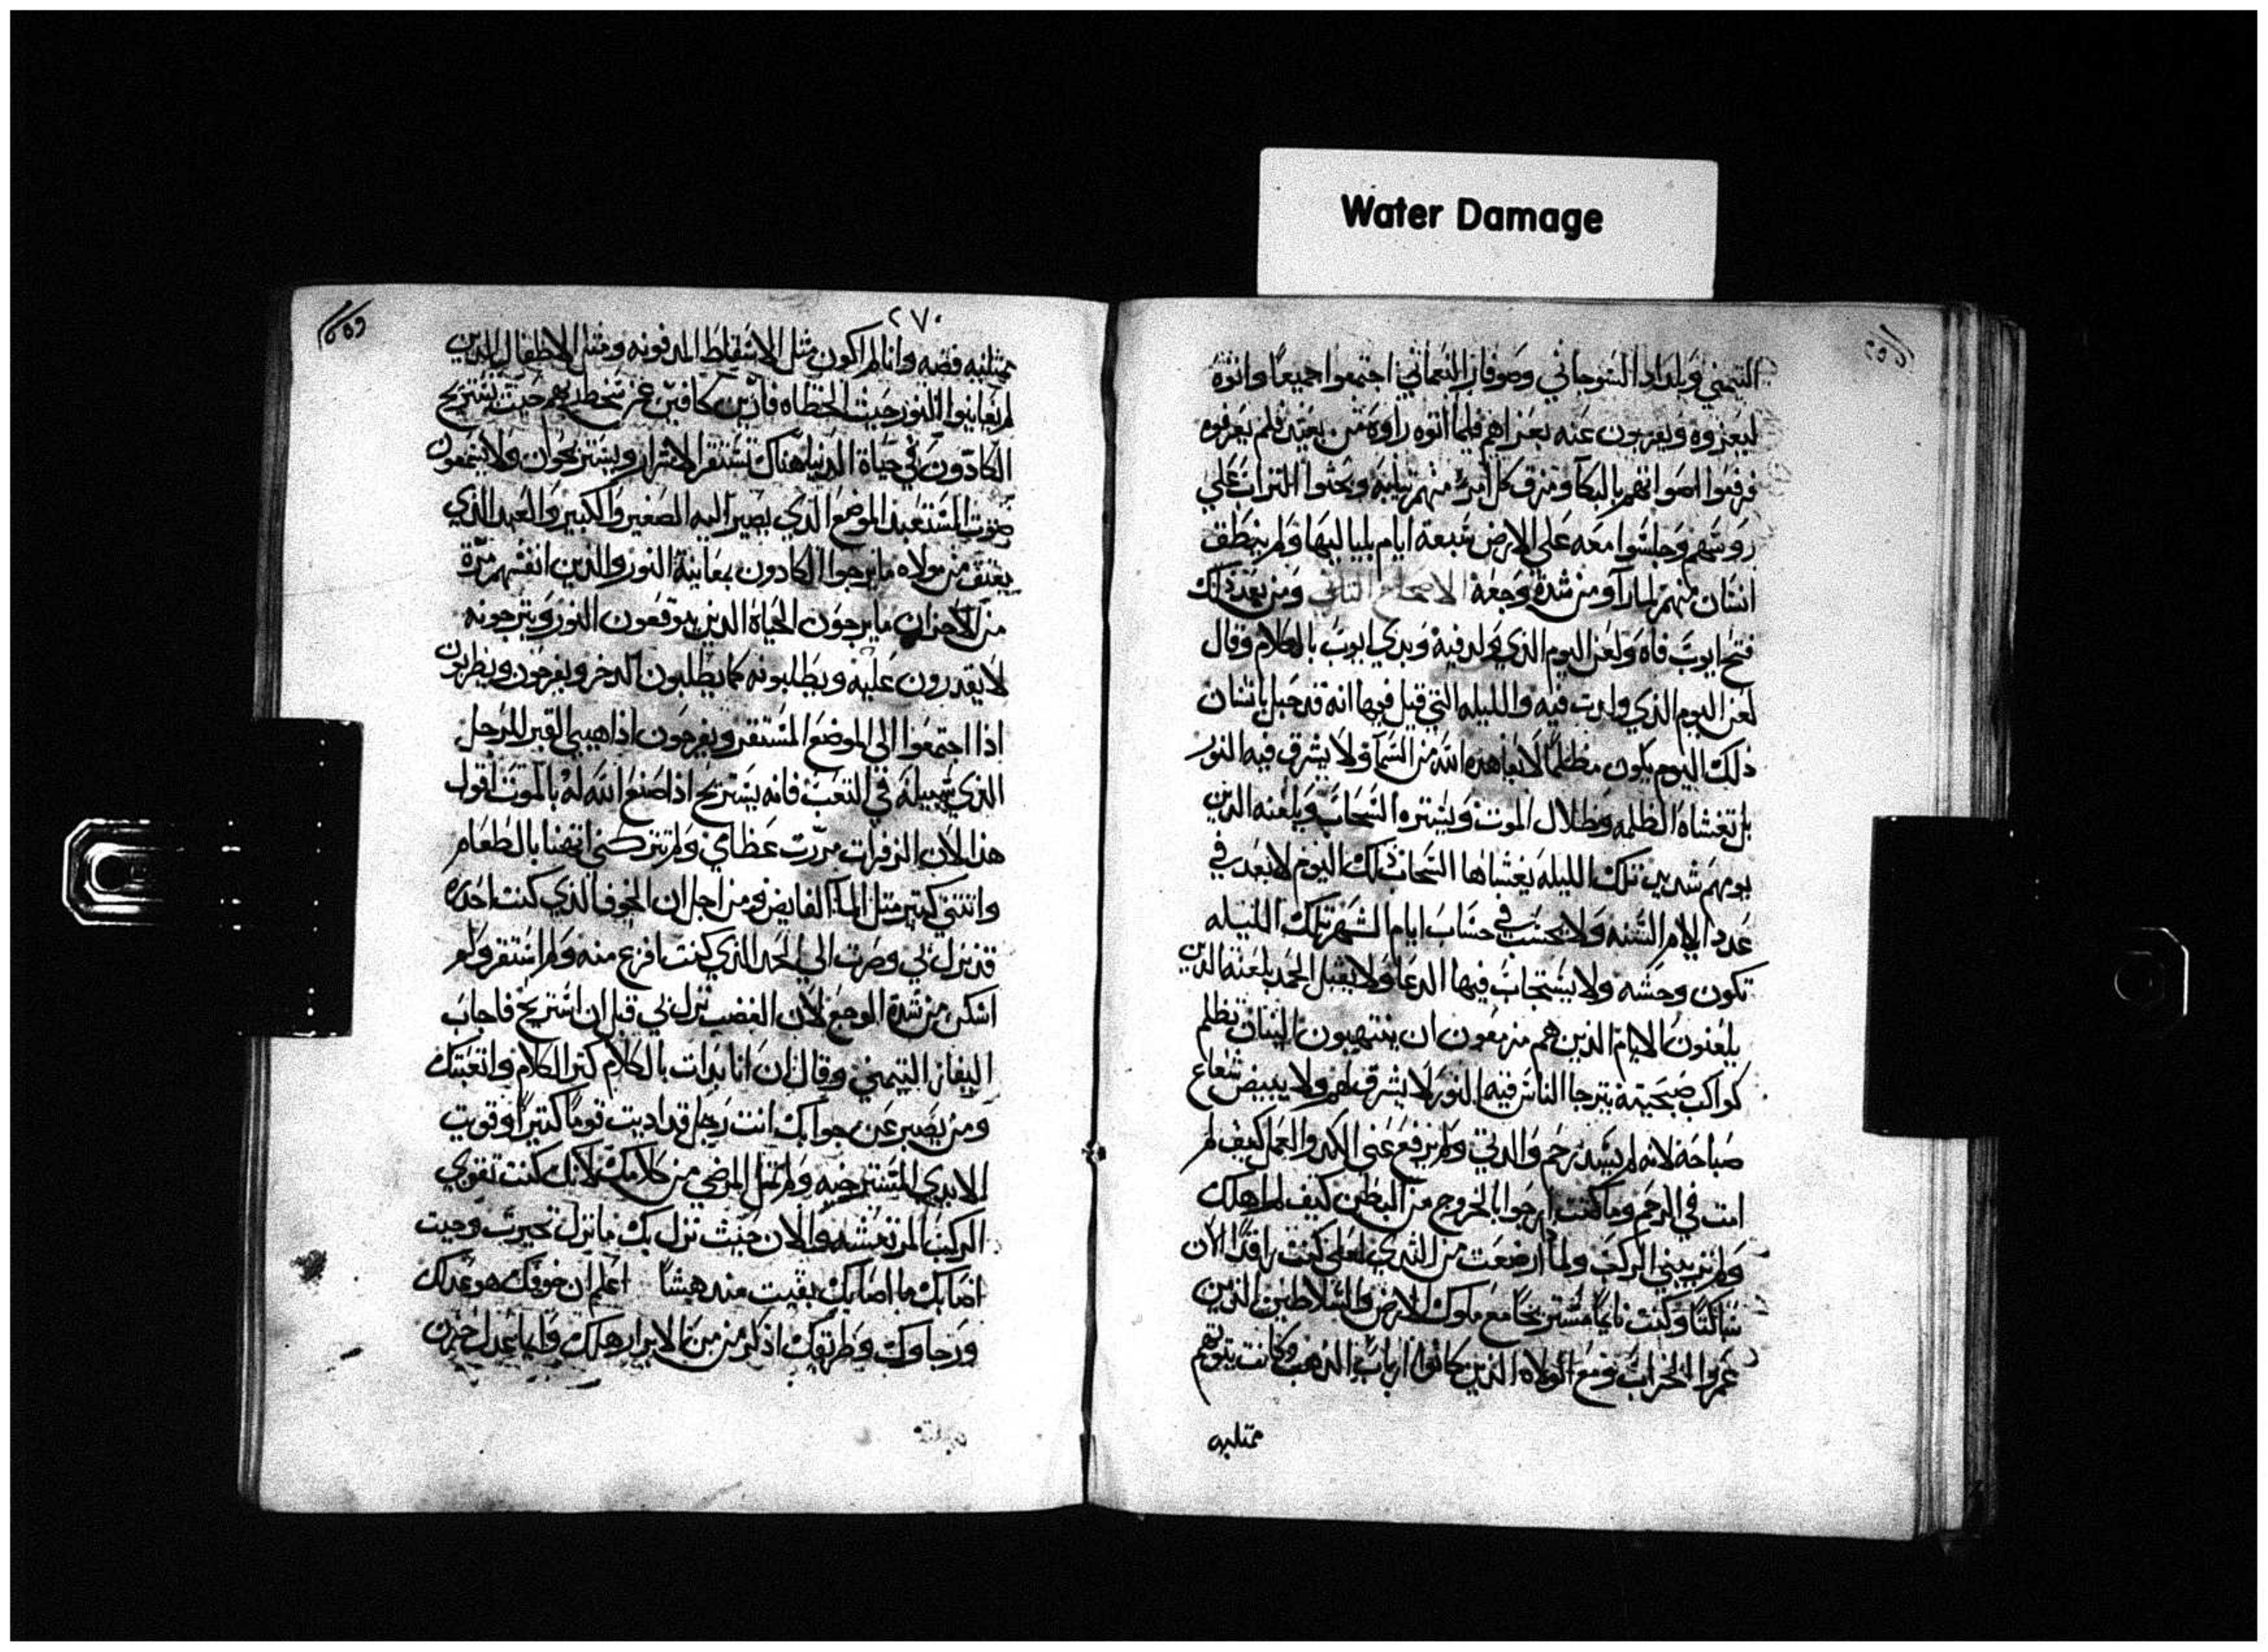 Water Damage
التيمني وبلداد الشوحاني وصوفار النعماني اجتمعوا جميعا واتوه
ليعزوه ويغربون عنه بعزاهم فلما اتوه راوه من بعيد فلم يعرفوه
فرفعوا اصواتهم بالبكا ومزق كل امرء منهم ثيابه وحثوا التراب علي
روسهم وجلسوا معه علي الارض سبعة ايام بلياليها ولم ينطق
انسان منهم لما راو من شدة وجعه الاصحاح الثالث ومن بعد ذلك
فتح ايوب فاه ولعن اليوم الذي ولد فيه وبدي ايوب بالكلام وقال
لعن اليوم الذي ولدت فيه والليله التي قيل فيها انه قد حبل بانسان
ذلك اليوم يكون مظلما لا يعاهده الله من السما ولا يشرق فيه النور
بل تغشاه الظلمه وظلال الموت ويستره السحاب ويلعنه الذين
يومهم شديد تلك الليله يغشاها السحاب ذلك اليوم لا يعد في
عدد ايام السنه ولا يحسب في حساب ايام الشهر تلك الليله
تكون وحشه ولا يستجاب فيها الدعا ولا يقبل الحمد يلعنه الذين
يلعنون الايام الذين هم مزمعون ان ينتهبون تظلم
كواكب صبحته يترجا الناس فيها النور لا يشرق لهم ولا يبيض شعاع
صباحه لانه لم يسد رحم والدتي ولم يرفع عني الكد والعمل كيف لم
امت في الرحم وما كنت ارجوا بالخروج من البطن كيف لم اهلك
ولم تربيني الركب ولما ارضعت من الثدي لعلي كنت راقدا الان
ساكتا وكنت نايما مستريحا مع ملوك الارض والسلاطين الذين
عمروا الخراب ومع الولاه الذين كانوا ارباب الذهب وكانت بيوتهم
ممتليه
٢٧٠
ممتليه فضه وانا لم اكون مثل الاسقاط المدفونه ومثل الاطفال الذين
لم يعاينوا النور حيث الخطاه كافين عن سخطهم حيث يستريح
الكادون في حياة الدنيا هناك تستقر الاشرار ويستريحوان ولا يسمعون
صوت المستعبد الموضع الذي يصير اليه الصغير والكبير والعبد الذي
يعتق من مولاه ما يرجوا الكادون بمعاينة النور والذين انفسهم مرة
من الاحزان ما يرجون الحياة الذين يتوقعون النور ويترجونه
لا يقدرون عليه ويطلبونه كما يطلبون الدخر ويفرحون ويطربون
اذا اجتمعوا الي الموضع المستقر ويفرحون اذا هيي القبر للرجل
الذي سبيله في التعب فانه يستريح اذا صنع الله له بالموت اقول
هذا لان الزفرات مررت عظامي ولم تتركني اتهنا بالطعام
وانثني كتير مثل الما الفايض ومن اجل ان الخوف الذي كنت احدره
قد نزل بي وصرت الي الحد الذي كنت افزع منه ولم استقر ولم
اسكن من شدة الوجع لان الغضب نزل بي قبل ان استريح فاجاب
اليفاز التيمني وقال ان انا بدات بالكلام كتر الكلام واتعبتك
ومن يصبر عن جوابك انت رجل قد اديت قوما كتيرا وقويت
الايدي المسترخيه ولم تمل المرضي من كلامك لانك كنت تقوي
الركب المرتعشه والان حيث نزل بك ما نزل تحيرت وحيت
اصابك ما اصابك بقيت مندهشا اعلم ان خوفك هو عدلك
ورجاوك وطريقك اذكر من من الابرار هلك وايما عدل حزن